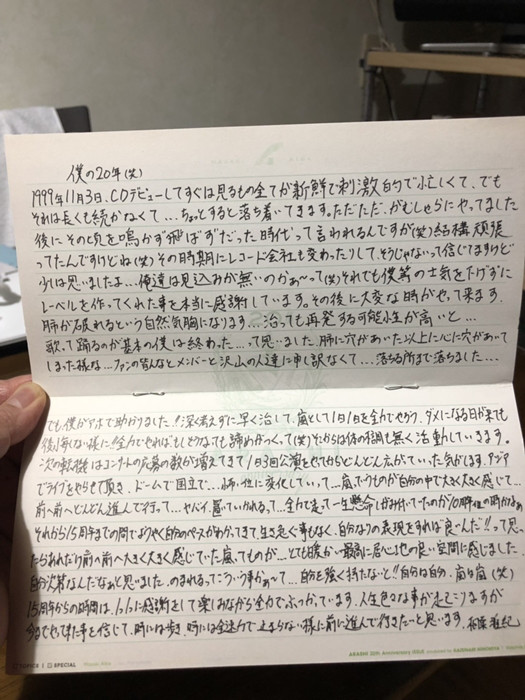 僕の20年(笑)
1999年11月3日、CDデビューしてすぐは見るもの全てが新鮮で刺激的で忙しくて、でも
それは長くも続かなくて...ちょっとすると落ち着いてきます。ただただ、がむしゃらにやってました
後にその頃を鳴かず飛ばずだった時代って言われるんですが(笑)結構頑張
ってたんですけどね(笑)その時期にレコード会社も変わったりして、そうじゃないって信じてますけど
少しは思いましたよ...俺達は見込みが無いのかぁ〜って(笑)それでも僕等の士気を下げずに
レーベルを作ってくれた事を本当に感謝しています。その後に大変な時がやって来ます。
肺が破れるという自然気胸になります...治っても再発する可能性が高いと...
歌って踊るのが基本の僕は終わった...って思いました。肺に穴があいた以上に心に穴があいて
しまった様な...ファンの皆んなとメンバーと沢山の人達に申し訳なくて...落ちる所まで落ちました...
でも僕がアホで助かりました!!深く考えずに早く治して、嵐として1日1日を全力でやろう、ダメになる日が来ても
後悔しない様に!!全力でやればもしそうなっても諦めがつくって(笑)そこからは体の不調も無く活動していきます。
次の転機はコンサートの応募の数が増えてきて1日3回公演をやってからどんどん広がっていった気がします。アジア
でライブをやらせて頂き、ドームで国立で...
前へ前へどんどん進んで行って...ヤバイ、置いていかれるって...全力で走って一生懸命しがみ付いてたのが10周年の時かなぁ
それから15周年までの間でようやく自分のペースがわかってきて、生き急ぐ事もなく、自分なりの表現をすれば良いんだ!!って思っ
たらあれだけ前へ前へ大きく大きく感じていた嵐ってものが...とても暖かい最高に居心地の良い空間に感じました。
自分次第なんだなぁと思いました。のまれるってこういう事かぁ〜て...自分を強く持たないと!!自分は自分、嵐は嵐(笑)
15周年からの時間は、1つ1つに感謝をして楽しみながら全力でぶつかっています。人生色々な事が起こりますが
今までやってきた事を信じて、時には歩き、時には全速力で止まらない様に前に進んで行きたいと思います。相葉雅紀
TOPICS | SPECIAL
ARASHI 20th Anniversary ISSUE